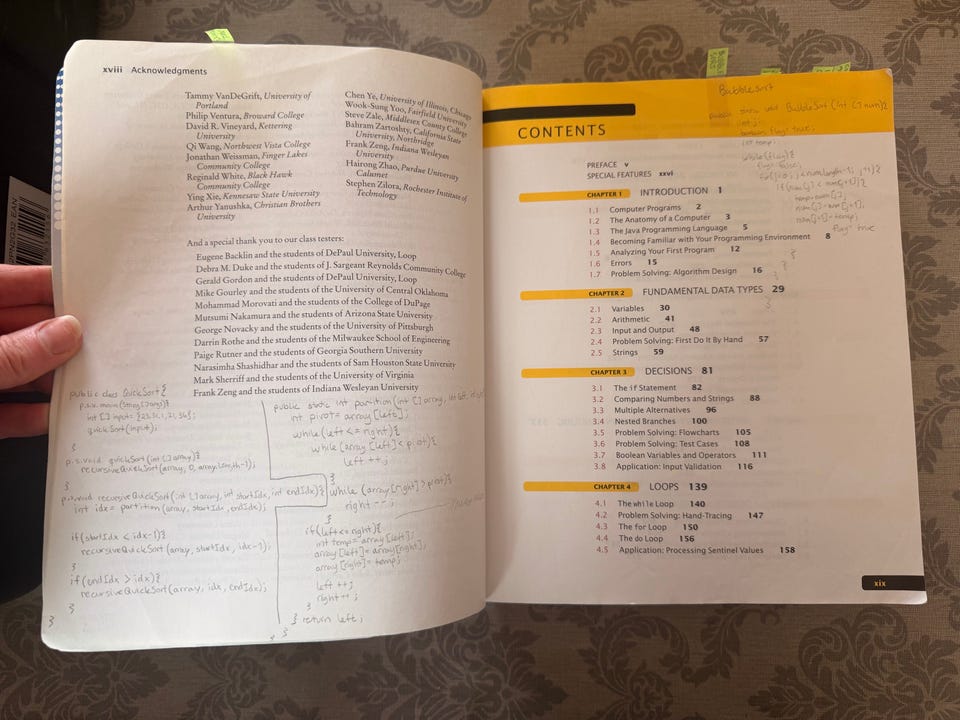 xviii Acknowledgments
Tammy VanDeGrift, University of
Portland
Philip Ventura, Broward College
David R. Vineyard, Kettering
University
Qi Wang, Northwest Vista College
Jonathan Weissman, Finger Lakes
Community College
Reginald White, Black Hawk
Community College
Ying Xie, Kennesaw State University
Arthur Yanushka, Christian Brothers
University
Chen Ye, University of Illinois, Chicago
Wook-Sung Yoo, Fairfield University
Steve Zale, Middlesex County College
Bahram Zartoshty, California State
University, Northridge
Frank Zeng, Indiana Wesleyan
University
Hairong Zhao, Purdue University
Calumet
Stephen Zilora, Rochester Institute of
Technology
And a special thank you to our class testers:
Eugene Backlin and the students of DePaul University, Loop
Debra M. Duke and the students of J. Sargeant Reynolds Community College
Gerald Gordon and the students of DePaul University, Loop
Mike Gourley and the students of the University of Central Oklahoma
Mohammad Morovati and the students of the College of DuPage
Mutsumi Nakamura and the students of Arizona State University
George Novacky and the students of the University of Pittsburgh
Darrin Rothe and the students of the Milwaukee School of Engineering
Paige Rutner and the students of Georgia Southern University
Narasimha Shashidhar and the students of Sam Houston State University
Mark Sherriff and the students of the University of Virginia
Frank Zeng and the students of Indiana Wesleyan University
public class QuickSort {
p.s.v. main (String[] args) {
int [] input = {23, 31, 1, 21, 36};
quickSort(input);
}
p.s.void quickSort (int [] array) {
recursiveQuickSort(array, 0, array.length-1);
}
p.s.void recursiveQuickSort (int [] array, int startIdx, int endIdx) {
int idx = partition (array, startIdx, endIdx);
if (startIdx < idx-1) {
recursiveQuickSort (array, startIdx, idx-1);
}
if (endIdx > idx) {
recursiveQuickSort (array, idx, endIdx);
}
}
public static int partition (int [] array, int left, int
int pivot = array [left];
while (left <= right) {
while (array [left] < pivot) {
left ++;
}
while (array [right] > pivot) {
right --;
}
if (left <= right) {
int temp = array [left];
array [left] = array [right];
array [right] = temp;
left ++;
right ++;
}
} return left;
}
CONTENTS
PREFACE v
SPECIAL FEATURES xxvi
CHAPTER 1 INTRODUCTION 1
1.1 Computer Programs 2
1.2 The Anatomy of a Computer 3
1.3 The Java Programming Language 5
1.4 Becoming Familiar with Your Programming Environment 8
1.5 Analyzing Your First Program 12
1.6 Errors 15
1.7 Problem Solving: Algorithm Design 16
CHAPTER 2 FUNDAMENTAL DATA TYPES 29
2.1 Variables 30
2.2 Arithmetic 41
2.3 Input and Output 48
2.4 Problem Solving: First Do It By Hand 57
2.5 Strings 59
CHAPTER 3 DECISIONS 81
3.1 The if Statement 82
3.2 Comparing Numbers and Strings 88
3.3 Multiple Alternatives 96
3.4 Nested Branches 100
3.5 Problem Solving: Flowcharts 105
3.6 Problem Solving: Test Cases 108
3.7 Boolean Variables and Operators 111
3.8 Application: Input Validation 116
CHAPTER 4 LOOPS 139
4.1 The while Loop 140
4.2 Problem Solving: Hand-Tracing 147
4.3 The for Loop 150
4.4 The do Loop 156
4.5 Application: Processing Sentinel Values 158
xix
BubbleSort
public static void BubbleSort (int [] num) {
int j;
boolean flag = true;
int temp;
while (flag) {
flag = false;
for (j=0; j<num.length-1; j++) {
if (num[j] < num[j+1]) {
temp = num[j];
num[j] = num[j+1];
num[j+1] = temp;
flag = true
}
}
}
}